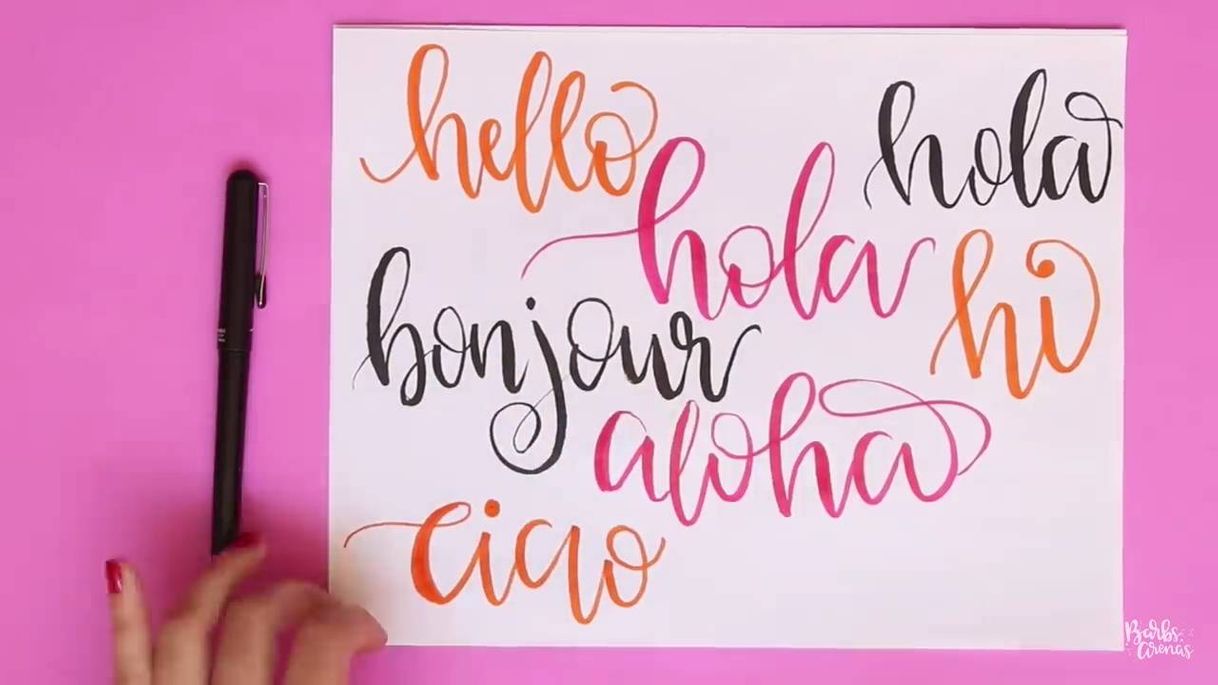 hello
hola
hola
hi
bonjour
aloha
ciao
Barbs
Arenas